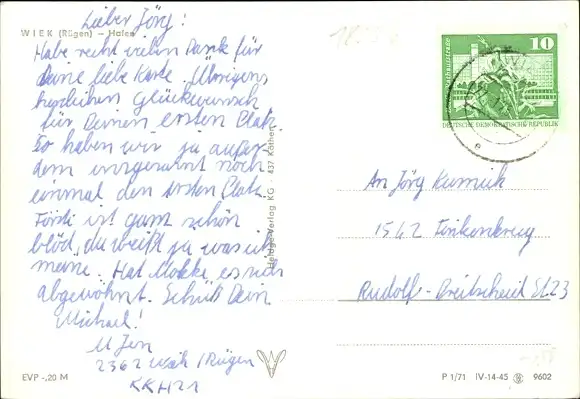 WIEK (Rügen) – Hafen
Lieber Jörg!
Habe recht vielen Dank für
Deine liebe Karte. Übrigens
herzlichen Glückwunsch
für Deinen ersten Platz.
So haben wir ja außer-
dem insgesamt noch
einmal den ersten Platz.
ist ganz schön
blöd, du weißt ja was ich
meine. Hat es sich
abgewöhnt. Schüß Dein
Michael!
2362 Wiek/Rügen
KKH21
EVP -,20 M
Verlag KG · 437 Köthen
10
DEUTSCHE DEMOKRATISCHE REPUBLIK
An Jörg
1542 Finkenkrug
Rudolf-Breitscheid Str.23
P 1/71 IV-14-45 9602